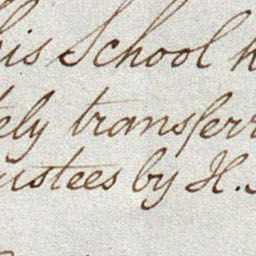 his School h
tely transferr
ustees by H.